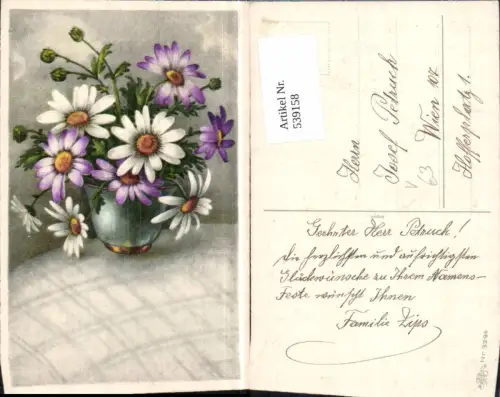 Artikel Nr.
539158
Herrn
Josef Petruch
Wien
Geehrter Herr Petruch!
Die herzlichsten und aufrichtigsten
Glückwünsche zu Ihrem Namens-
Feste wünscht Ihnen
Familie Zips